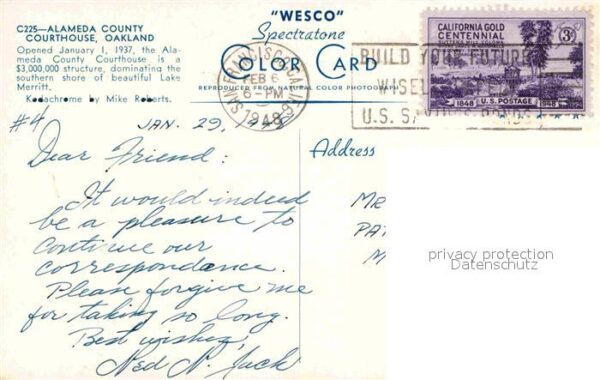 C225—ALAMEDA COUNTY
COURTHOUSE, OAKLAND
Opened January 1, 1937, the Ala-
meda County Courthouse is a
$3,000,000 structure, dominating the
southern shore of beautiful Lake
Merritt.
Kodachrome by Mike Roberts.
"WESCO"
Spectratone
COLOR CARD
REPRODUCED FROM NATURAL COLOR PHOTOGRAPH
SAN FRANCISCO, CALIF.
FEB 6
6 - PM
1948
BUILD YOUR FUTURE
WISELY
U.S. SAVINGS BONDS
CALIFORNIA GOLD
CENTENNIAL
3¢
1848 U.S. POSTAGE 1948
#4
JAN. 29, 
Dear Friend:
It would indeed
be a pleasure to
continue our
correspondence.
Please forgive me
for taking so long.
Best wishes,
Ned N. Jack
Address
MR
PA
M
privacy protection
Datenschutz